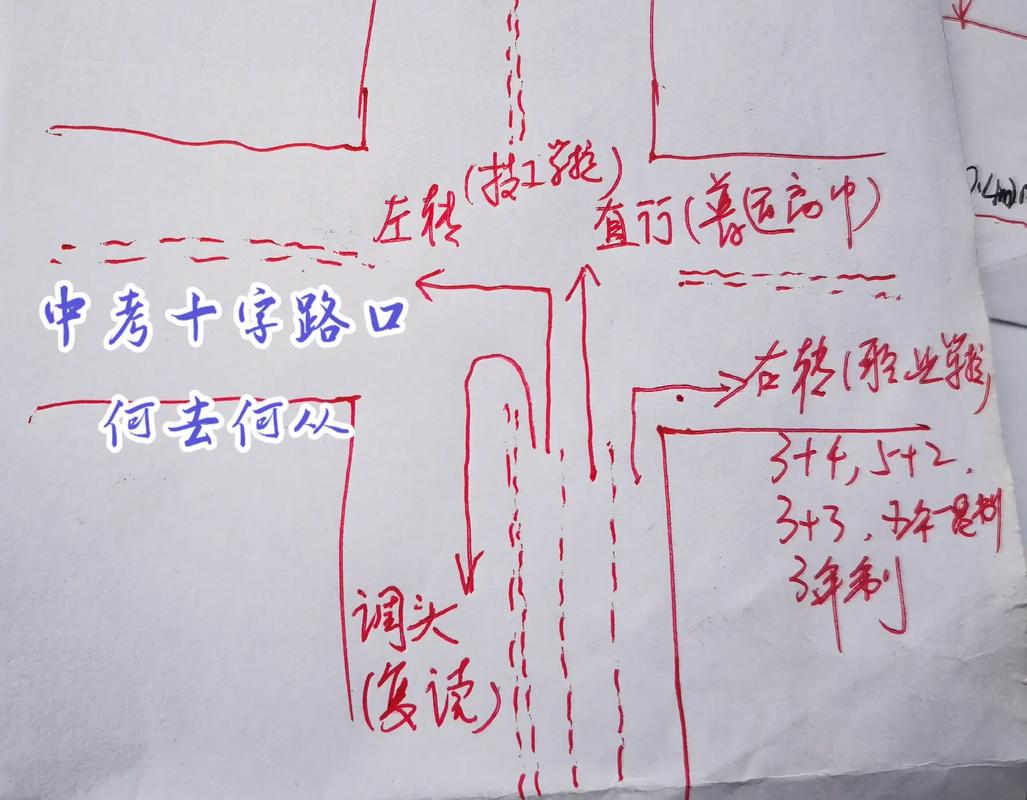 左转(技工学校)
直行(普通高中)
中考十字路口
何去何从
右转(职业学校)
3+4,5+2.
3+3.五年一贯制
3年制
调头
(复读)